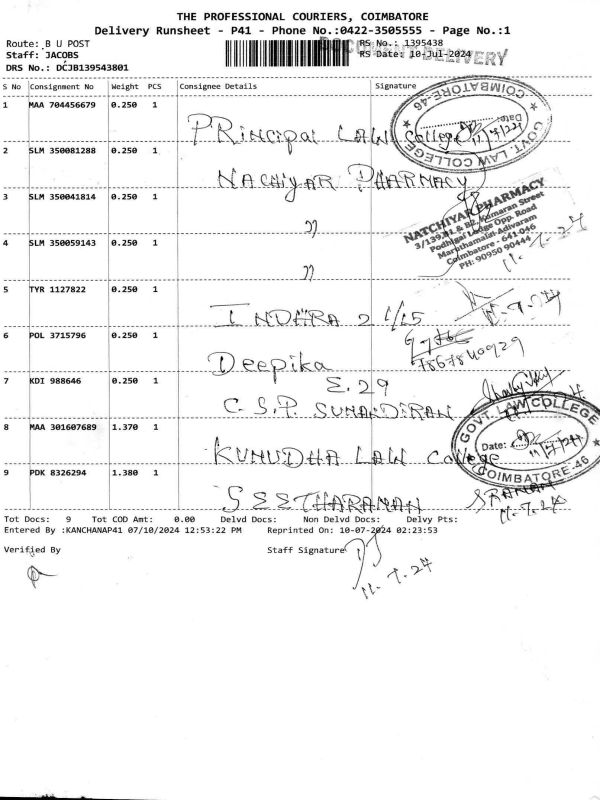 THE PROFESSIONAL COURIERS, COIMBATORE
Delivery Runsheet - P41 - Phone No.:0422-3505555 - Page No.:1
Route: B U POST
Staff: JACOBS
DRS No.: DCJB139543801
RS No.: 1395438
RS Date: 10-Jul-2024
DOCUMENT DELIVERY
S No Consignment No Weight PCS Consignee Details Signature
1 MAA 704456679 0.250 1
PRINCIPAL LAW College
COIMBATORE-46
Date:
GOVT. LAW COLLEGE
2 SLM 350081288 0.250 1
NACHIYAR PHARMACY
3 SLM 350041814 0.250 1
"
NATCHIYAR PHARMACY
3/139,B1 & B2, Kumaran Street
Podhigai Lodge Opp. Road
Maruthamalai Adivaram
Coimbatore - 641 046
PH: 90950 90444
11.7.24
4 SLM 350059143 0.250 1
"
5 TYR 1127822 0.250 1
6 POL 3715796 0.250 1
Deepika
7867840929
7 KDI 988646 0.250 1
E.29
C.S.P. SUNANDIRAN
8 MAA 301607689 1.370 1
KUMUDHA LAW College
GOVT. LAW COLLEGE
Date:
COIMBATORE-46
9 PDK 8326294 1.380 1
SEETHARAMAN
11.7.24
Tot Docs: 9 Tot COD Amt: 0.00 Delvd Docs: Non Delvd Docs: Delvy Pts:
Entered By :KANCHANAP41 07/10/2024 12:53:22 PM Reprinted On: 10-07-2024 02:23:53
Verified By Staff Signature
11.7.24